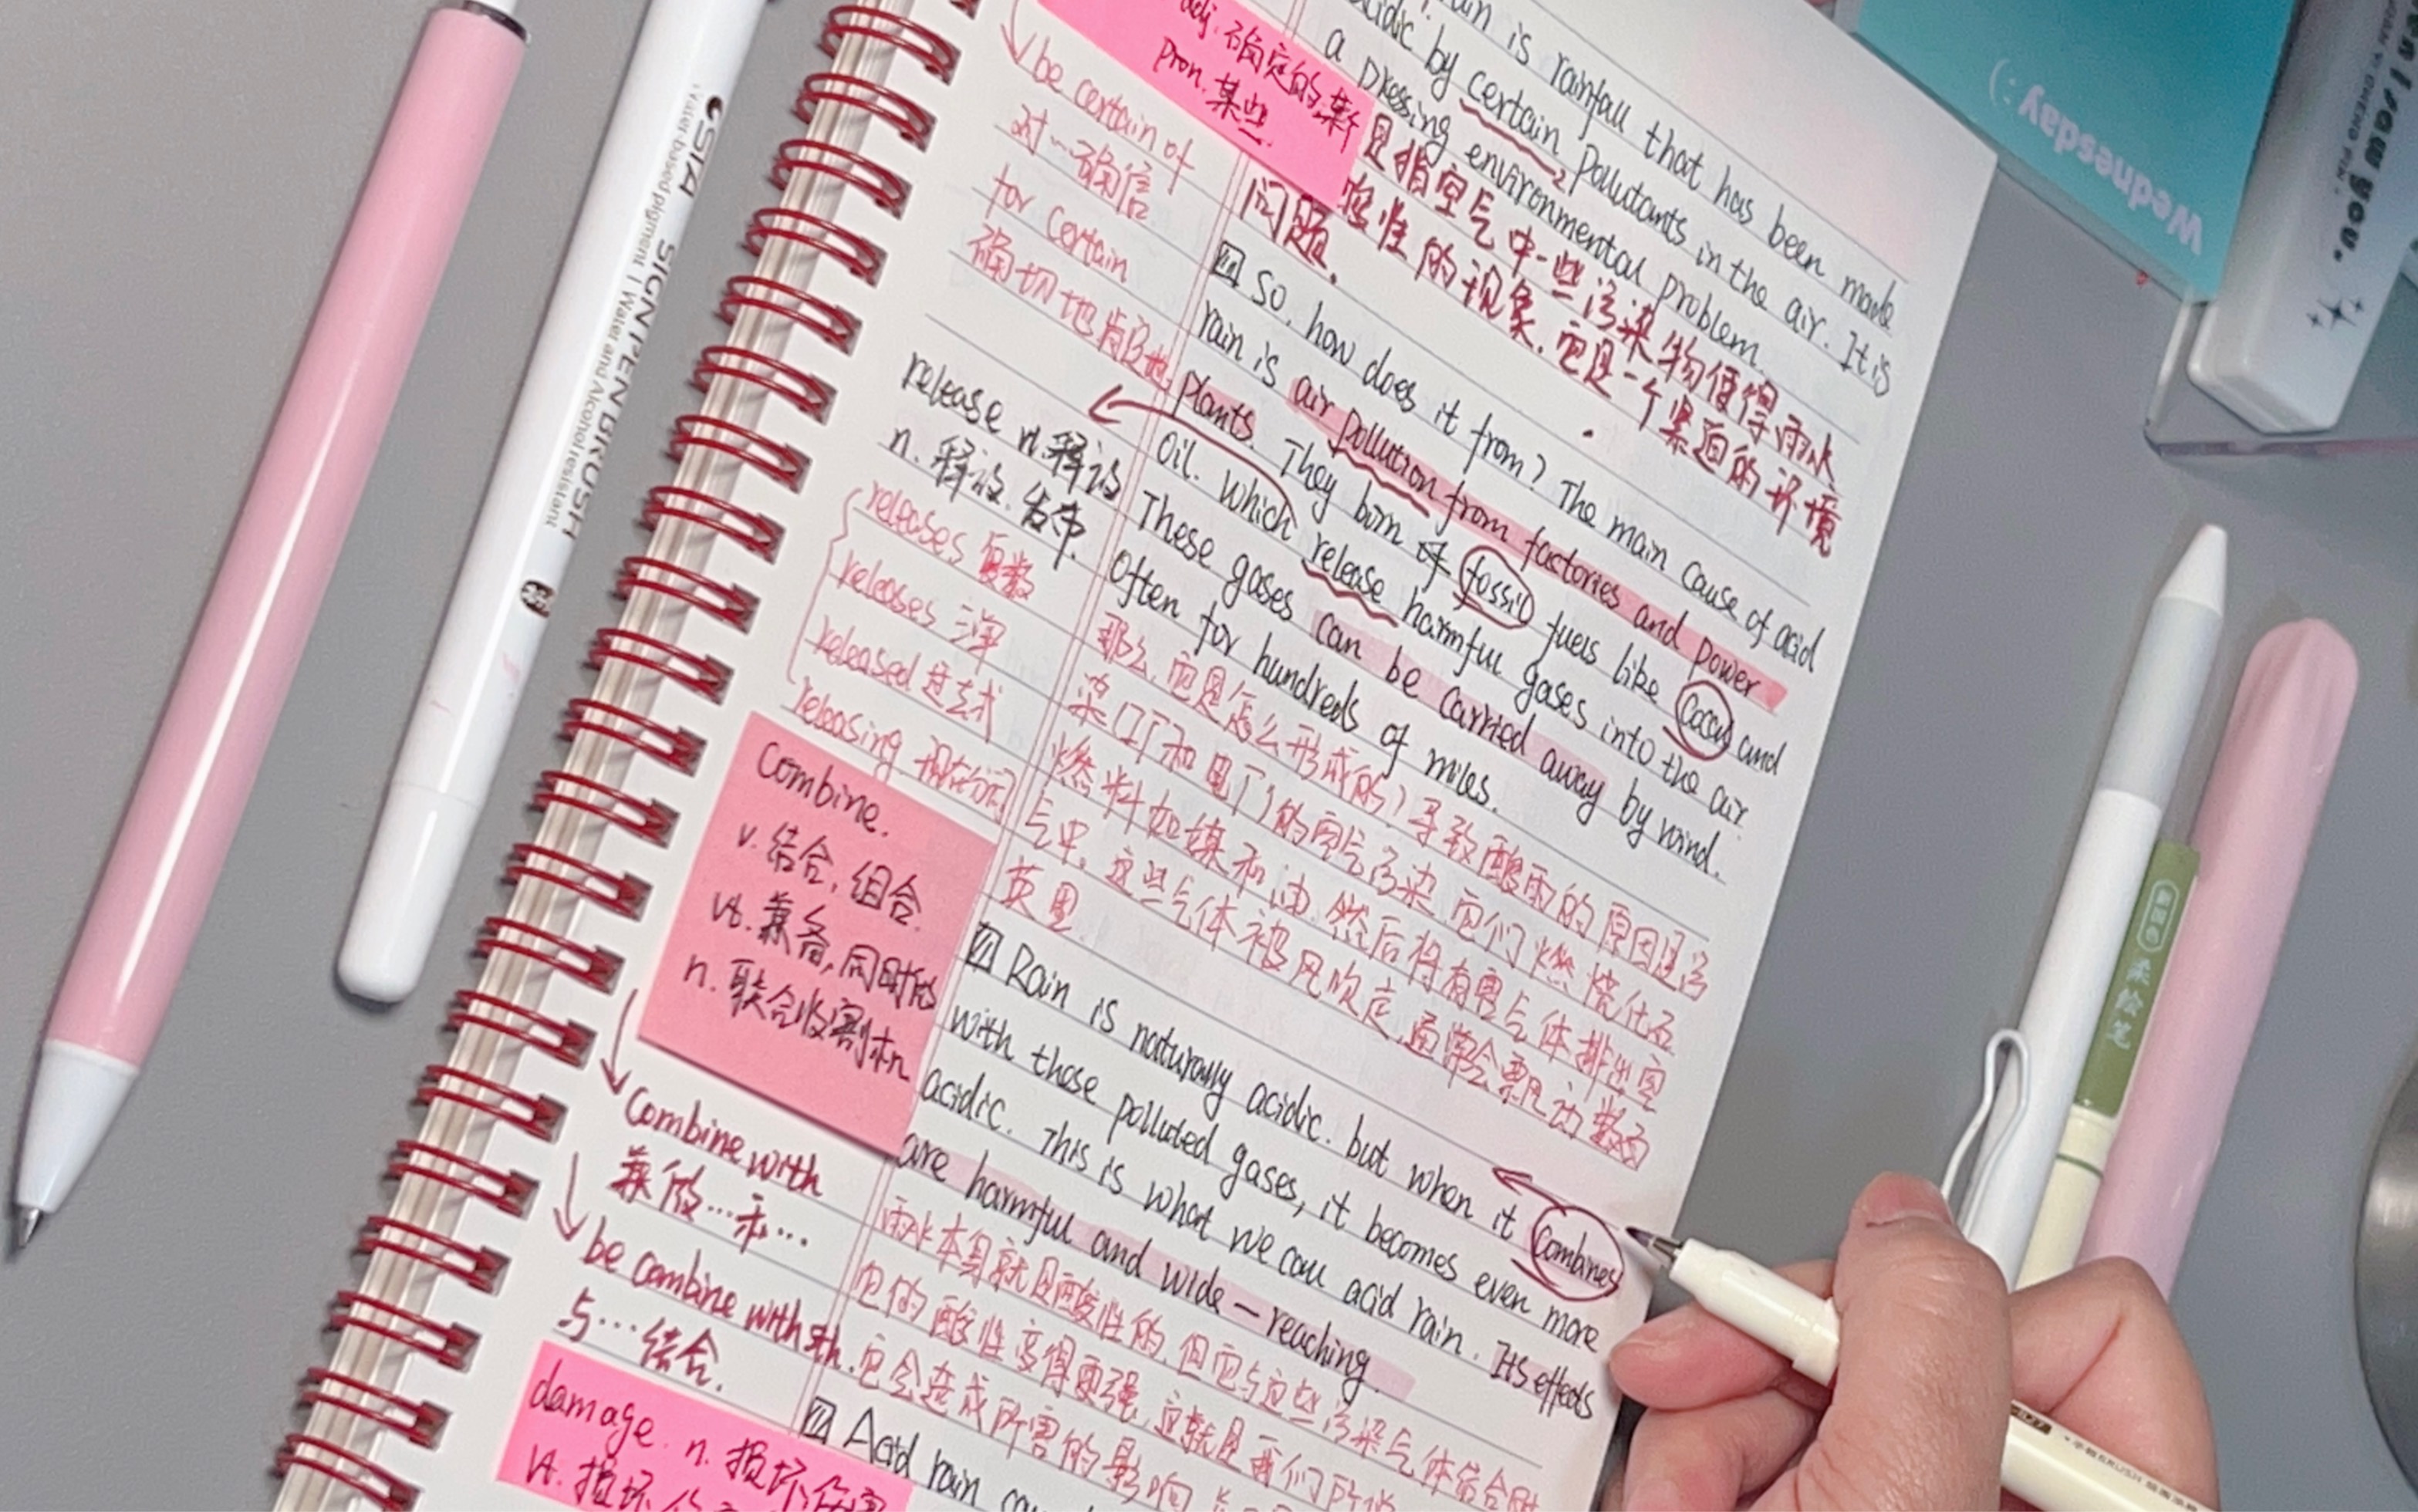 adj. 确定的.某个
pron. 某些.
be certain of
对…确信
for certain
确切地 肯定地
release v.释放
n. 释放.发布.
releases 复数
releases 三单
released 过去式
releasing 现在分词
combine.
v. 结合, 组合.
vt. 兼备, 同时做
n. 联合收割机
combine with
兼做…和…
be combine with sth.
与…结合.
damage. n. 损坏 伤害
vt. 损坏
rain is rainfall that has been made
acidic by certain pollutants in the air. It is
a pressing environmental problem.
是指空气中一些污染物使得雨水
酸性的现象.它是一个紧迫的环境
问题.
So, how does it from? The main cause of acid
rain is air pollution from factories and power
plants. They born of fossil fuels like coal and
oil. which release harmful gases into the air
These gases can be carried away by wind.
Often for hundreds of miles.
那么,它是怎么形成的? 导致酸雨的原因是污
染工厂和电厂的空气污染 它们燃烧化石
燃料如煤和油.然后将有害气体排出空
气中, 这些气体被风吹走.通常会飘动数百
英里.
Rain is naturally acidic. but when it combines
with those polluted gases, it becomes even more
acidic. This is what we call acid rain. Its effects
are harmful and wide-reaching.
雨水本身就是酸性的.但它与这些污染气体结合时
它的酸性变得更强.这就是我们所说
它会造成所害的影响
Acid rain
Wednesday :)
when I saw you.
SIGN PEN BRUSH
Water-based pigment | Water and Alcohol resistant
柔绘笔